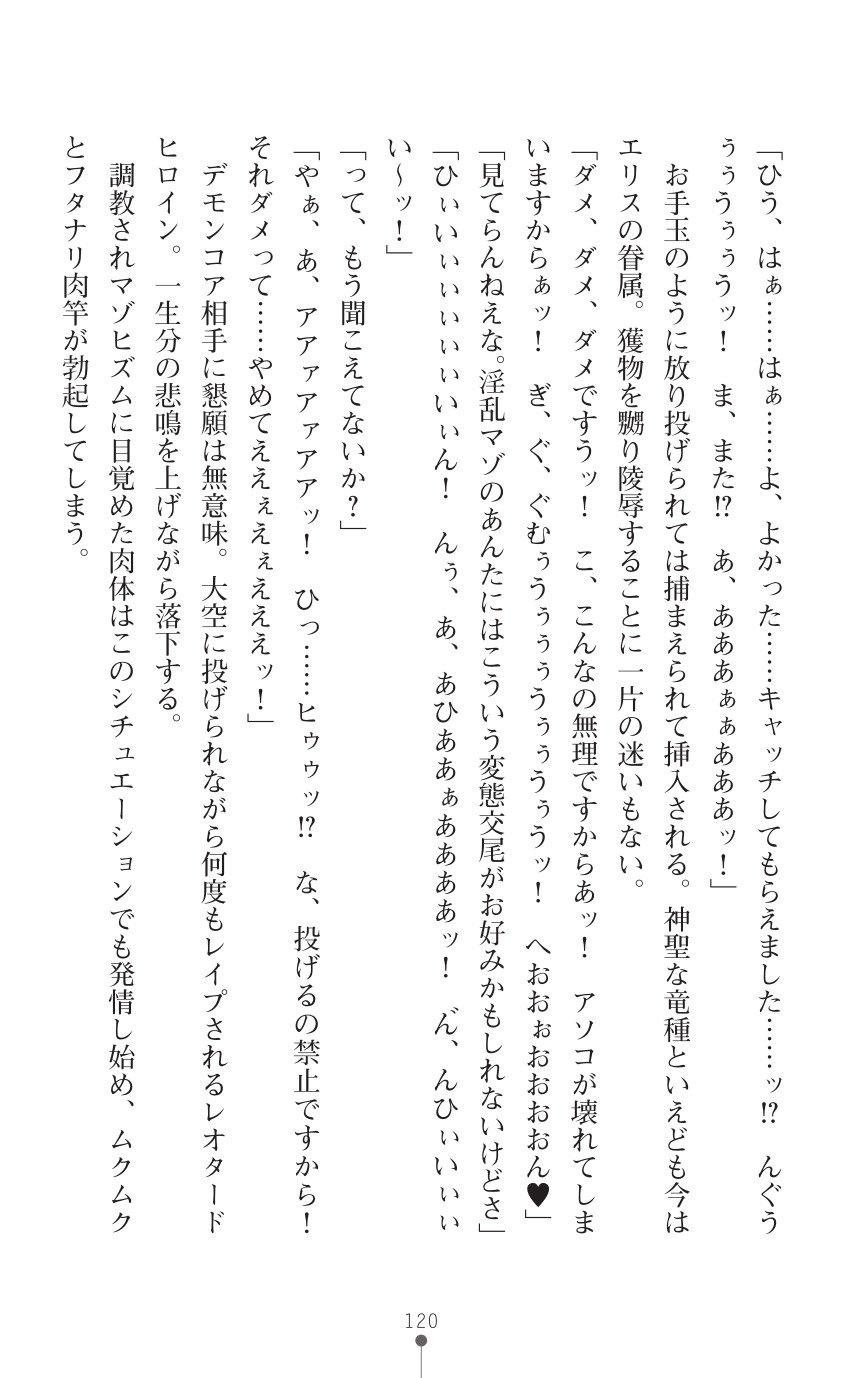 「ひう、はぁ……はぁ……よ、よかった……キャッチしてもらえました……ッ!?　んぐう
ぅぅうぅぅうッ！　ま、また!?　あ、あああぁぁあああッ！」
　お手玉のように放り投げられては捕まえられて挿入される。神聖な竜種といえども今は
エリスの眷属。獲物を嬲り陵辱することに一片の迷いもない。
「ダメ、ダメ、ダメですうッ！　こ、こんなの無理ですからあッ！　アソコが壊れてしま
いますからぁッ！　ぎ、ぐ、ぐむぅうぅぅぅうぅぅうぅうッ！　へおおぉおおおおん♥」
「見てらんねえな。淫乱マゾのあんたにはこういう変態交尾がお好みかもしれないけどさ」
「ひぃいぃぃぃぃぃいぃん！　んぅ、あ、あひああぁああああッ！　ん゛、んひぃいぃぃ
い～ッ！」
「って、もう聞こえてないか？」
「やぁ、あ、アアァアァアアッ！　ひっ……ヒゥゥッ!?　な、投げるの禁止ですから！
それダメって……やめてええぇえぇえええッ！」
　デモンコア相手に懇願は無意味。大空に投げられながら何度もレイプされるレオタード
ヒロイン。一生分の悲鳴を上げながら落下する。
　調教されマゾヒズムに目覚めた肉体はこのシチュエーションでも発情し始め、ムクムク
とフタナリ肉竿が勃起してしまう。
120